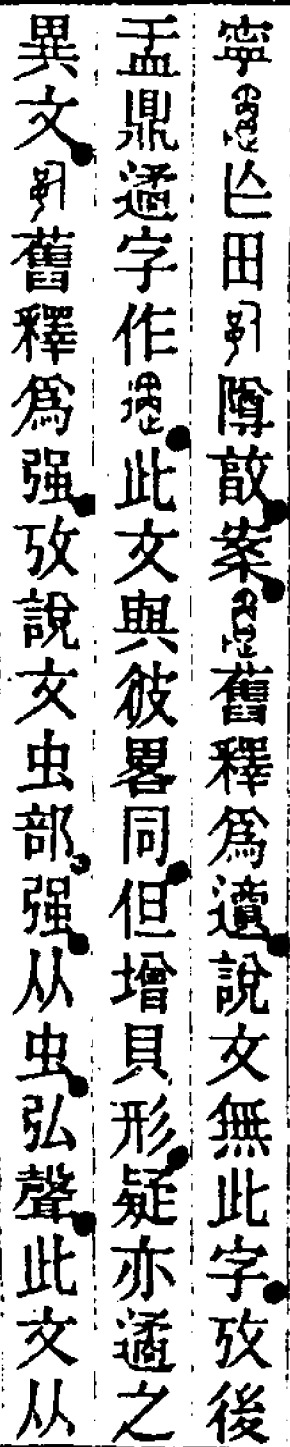 寧亾田隮敼案舊釋爲𨘥說文無此字攷後
盂鼎遹字作此文與彼畧同但增貝形疑亦遹之
異文舊釋爲强攷說文虫部强从虫弘聲此文从